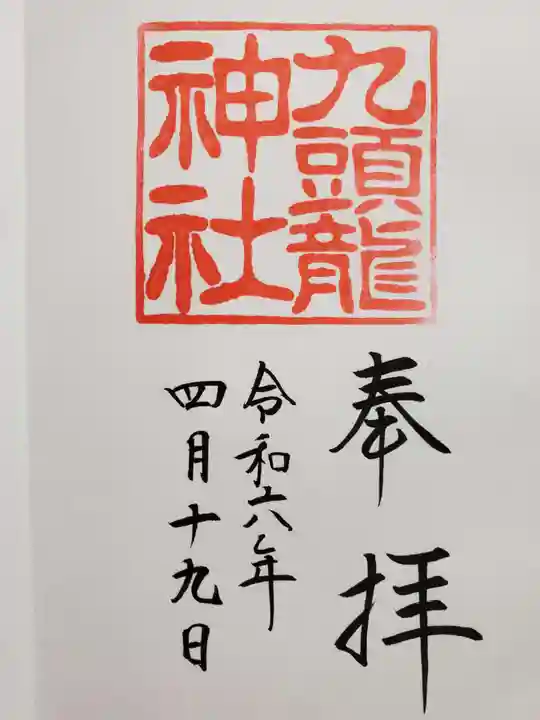 九頭龍
神社
奉拝
令和六年
四月十九日